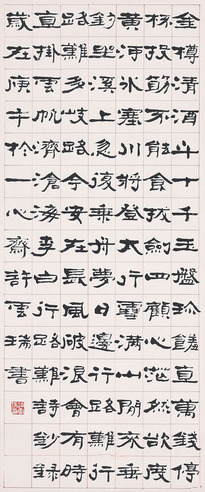 金樽清酒斗十千玉盤珍饈直萬錢停
杯投筯不能食拔劍四顧心茫然欲度
黃河冰塞川將登太行雪滿山閒來垂
釣坐溪上忽復乘舟夢日邊行路難行
路難多岐路今安在長風破浪會有時
直掛雲帆濟滄海李白行路難詩鈔錄
歲在庚午於一心齋許雲瑞書